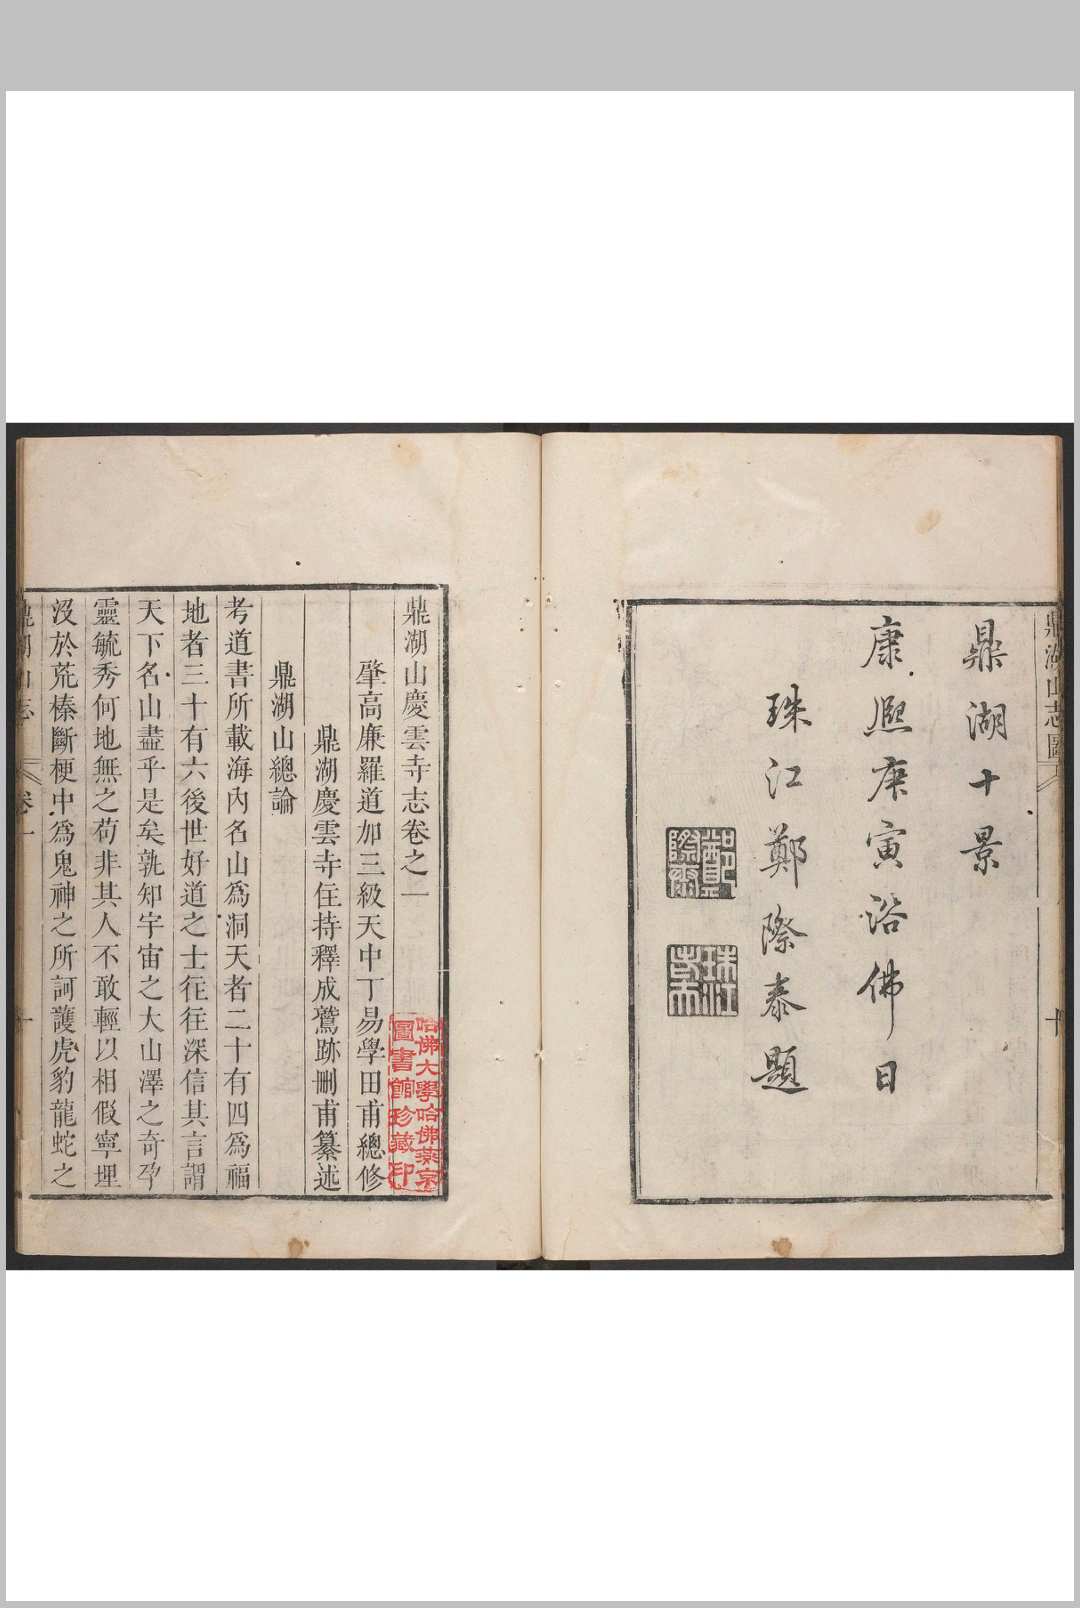 鼎湖山志圖
十
鼎湖十景
康熙庚寅浴佛日
珠江鄭際泰題
鼎湖山慶雲寺志卷之一
肇高廉羅道加三級天中丁易學田甫總修
鼎湖慶雲寺住持釋成鷲跡刪甫纂述
鼎湖山總論
考道書所載海內名山爲洞天者二十有四爲福
地者三十有六後世好道之士往往深信其言謂
天下名山盡乎是矣孰知宇宙之大山澤之奇孕
靈毓秀何地無之苟非其人不敢輕以相假寧埋
沒於荒榛斷梗中爲鬼神之所訶護虎豹龍蛇之
鼎湖山志
卷一
一
哈佛大學哈佛燕京
圖書館珍藏印